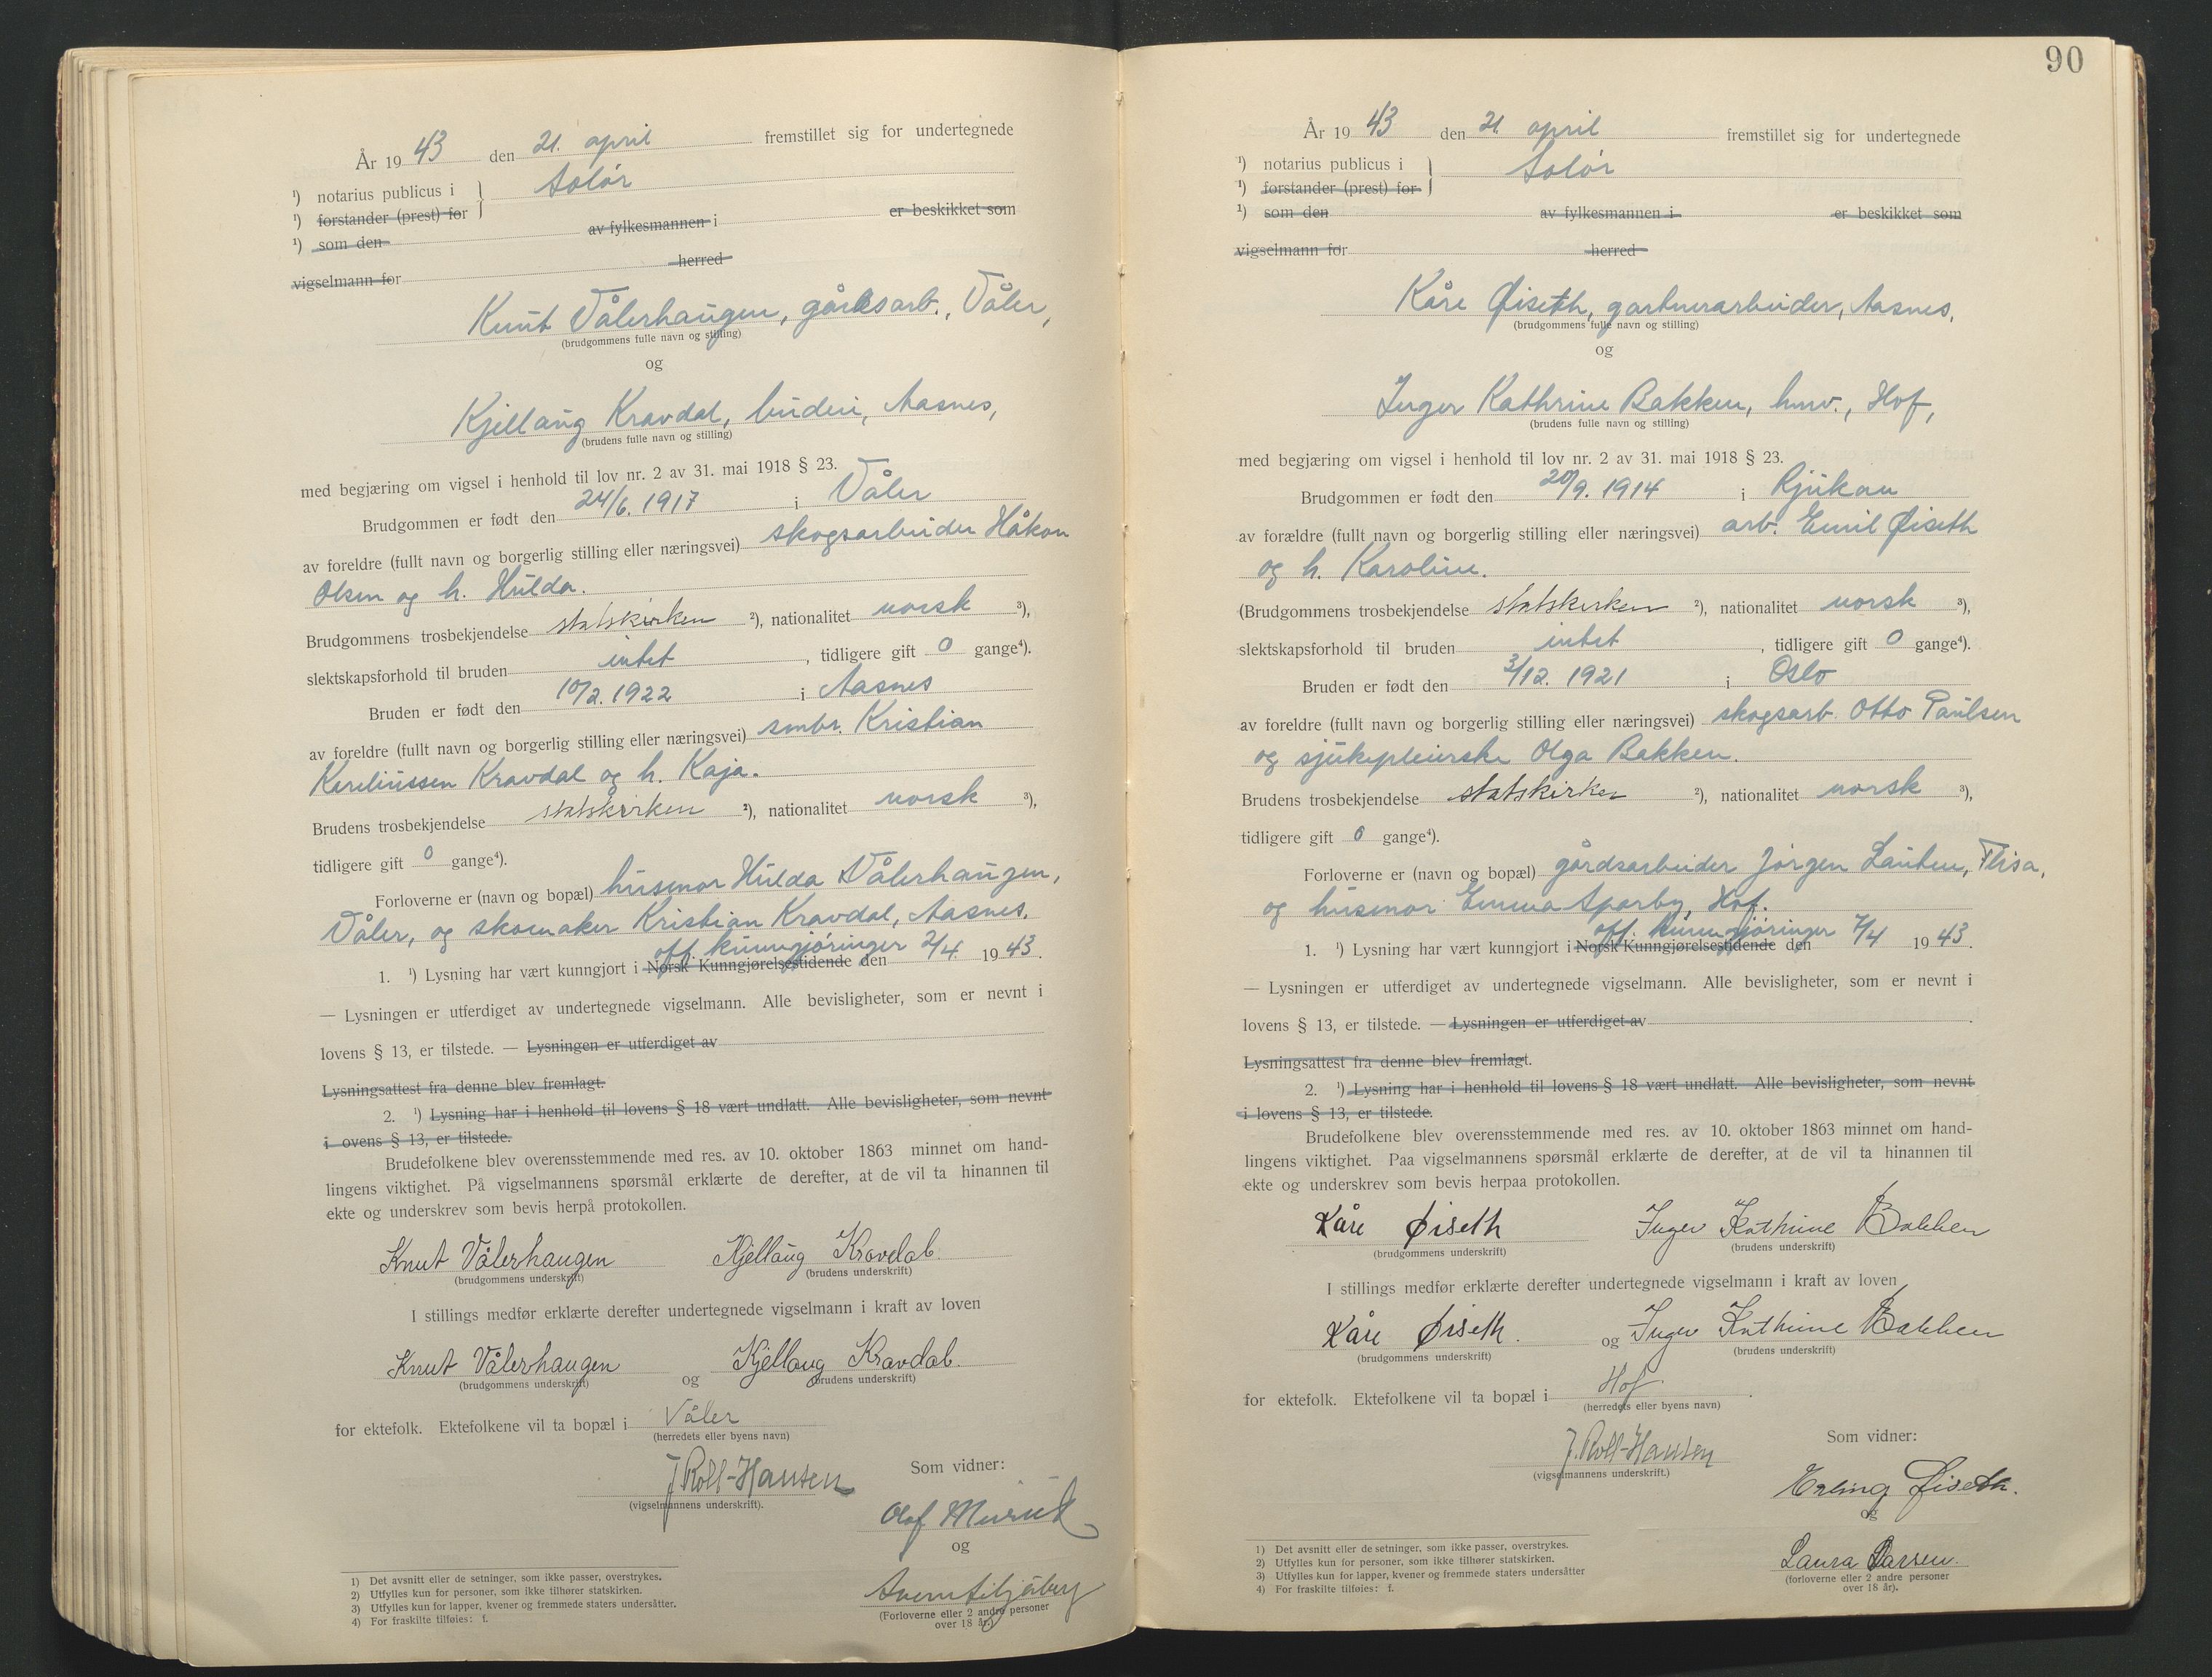 År 19 43 den 21. april fremstillet sig for undertegnede
¹) notarius publicus i } Solør
¹) forstander (prest) for
¹) som den av fylkesmannen i er beskikket som
vigselmann for herred
Knut Vålerhaugen, gårdsarb., Våler,
(brudgommens fulle navn og stilling)
og
Kjellaug Kravdal, budeie, Aasnes,
(brudens fulle navn og stilling)
med begjæring om vigsel i henhold til lov nr. 2 av 31. mai 1918 § 23.
Brudgommen er født den 24/6. 1917 i Våler
av foreldre (fullt navn og borgerlig stilling eller næringsvei) skogsarbeider Håkon
Olsen og h. Hulda.
Brudgommens trosbekjendelse statskirken ²), nationalitet norsk ³),
slektskapsforhold til bruden intet , tidligere gift 0 gange⁴).
Bruden er født den 10/2. 1922 i Aasnes
av foreldre (fullt navn og borgerlig stilling eller næringsvei) smbr. Kristian
Kareliussen Kravdal og h. Kaja.
Brudens trosbekjendelse statskirken ²), nationalitet norsk ³),
tidligere gift 0 gange⁴).
Forloverne er (navn og bopæl) husmor Hulda Vålerhaugen,
Våler, og skomaker Kristian Kravdal, Aasnes.
off. kunngjøringer
1. ¹) Lysning har vært kunngjort i Norsk Kunngjørelsestidende den 2/4. 19 43.
— Lysningen er utferdiget av undertegnede vigselmann. Alle bevisligheter, som er nevnt i
lovens § 13, er tilstede. — Lysningen er utferdiget av
Lysningsattest fra denne blev fremlagt.
2. ¹) Lysning har i henhold til lovens § 18 vært undlatt. Alle bevisligheter, som nevnt
i ovens § 13, er tilstede.
Brudefolkene blev overensstemmende med res. av 10. oktober 1863 minnet om hand-
lingens viktighet. På vigselmannens spørsmål erklærte de derefter, at de vil ta hinannen til
ekte og underskrev som bevis herpå protokollen.
Knut Vålerhaugen Kjellaug Kravdal.
(brudgommens underskrift) (brudens underskrift)
I stillings medfør erklærte derefter undertegnede vigselmann i kraft av loven
Knut Vålerhaugen og Kjellaug Kravdal.
(brudgommens underskrift) (brudens underskrift)
for ektefolk. Ektefolkene vil ta bopæl i Våler
(herredets eller byens navn)
J. Roll-Hansen
(vigselmannens underskrift).
Som vidner:
Olaf
og
(Forloverne eller 2 andre personer
over 18 år.)
1) Det avsnitt eller de setninger, som ikke passer, overstrykes.
2) Utfylles kun for personer, som ikke tilhører statskirken.
3) Utfylles kun for lapper, kvener og fremmede staters undersåtter.
4) For fraskilte tilføies: f.
90
År 19 43 den 21. april fremstillet sig for undertegnede
¹) notarius publicus i } Solør
¹) forstander (prest) for
¹) som den av fylkesmannen i er beskikket som
vigselmann for herred
Kåre Øiseth, gartnerarbeider, Aasnes,
(brudgommens fulle navn og stilling)
og
Inger Kathrine Bakken, hmv., Hof,
(brudens fulle navn og stilling)
med begjæring om vigsel i henhold til lov nr. 2 av 31. mai 1918 § 23.
Brudgommen er født den 20/9. 1914 i Rjukan
av forældre (fullt navn og borgerlig stilling eller næringsvei) arb. Emil Øiseth
og h. Karoline.
(Brudgommens trosbekjendelse statskirken ²), nationalitet norsk ³),
slektskapsforhold til bruden intet , tidligere gift 0 gange⁴).
Bruden er født den 3/12. 1921 i Oslo
av foreldre (fullt navn og borgerlig stilling eller næringsvei) skogsarb. Otto Paulsen
og sjukepleierske Olga Bakken.
Brudens trosbekjendelse statskirken ²), nationalitet norsk ³),
tidligere gift 0 gange⁴).
Forloverne er (navn og bopæl) gårdsarbeider Jørgen Lauten, Flisa,
og husmor Emma Sparby, Hof.
off. kunngjøringer
1. ¹) Lysning har vært kunngjort i Norsk Kunngjørelsestidende den 7/4 19 43.
— Lysningen er utferdiget av undertegnede vigselmann. Alle bevisligheter, som er nevnt i
lovens § 13, er tilstede. — Lysningen er utferdiget av
Lysningsattest fra denne blev fremlagt.
2. ¹) Lysning har i henhold til lovens § 18 vært undlatt. Alle bevisligheter, som nevnt
i lovens § 13, er tilstede.
Brudefolkene blev overensstemmende med res. av 10. oktober 1863 minnet om hand-
lingens viktighet. Paa vigselmannens spørsmål erklærte de derefter, at de vil ta hinannen til
ekte og underskrev som bevis herpaa protokollen.
Kåre Øiseth Inger Kathrine Bakken
(brudgommens underskrift) (brudens underskrift)
I stillings medfør erklærte derefter undertegnede vigselmann i kraft av loven
Kåre Øiseth. og Inger Kathrine Bakken
(brudgommens underskrift) (brudens underskrift)
for ektefolk. Ektefolkene vil ta bopæl i Hof.
(herredets eller byens navn)
J. Roll-Hansen
(vigselmannens underskrift.)
Som vidner:
Erling Øiseth.
og
Laura Larsen.
(forloverne eller 2 andre personer
over 18 år).
1) Det avsnitt eller de setninger, som ikke passer, overstrykes.
2) Utfylles kun for personer, som ikke tilhører statskirken.
3) Utfylles kun for lapper, kvener og fremmede staters undersåtter
4) For fraskilte tilføies: f.